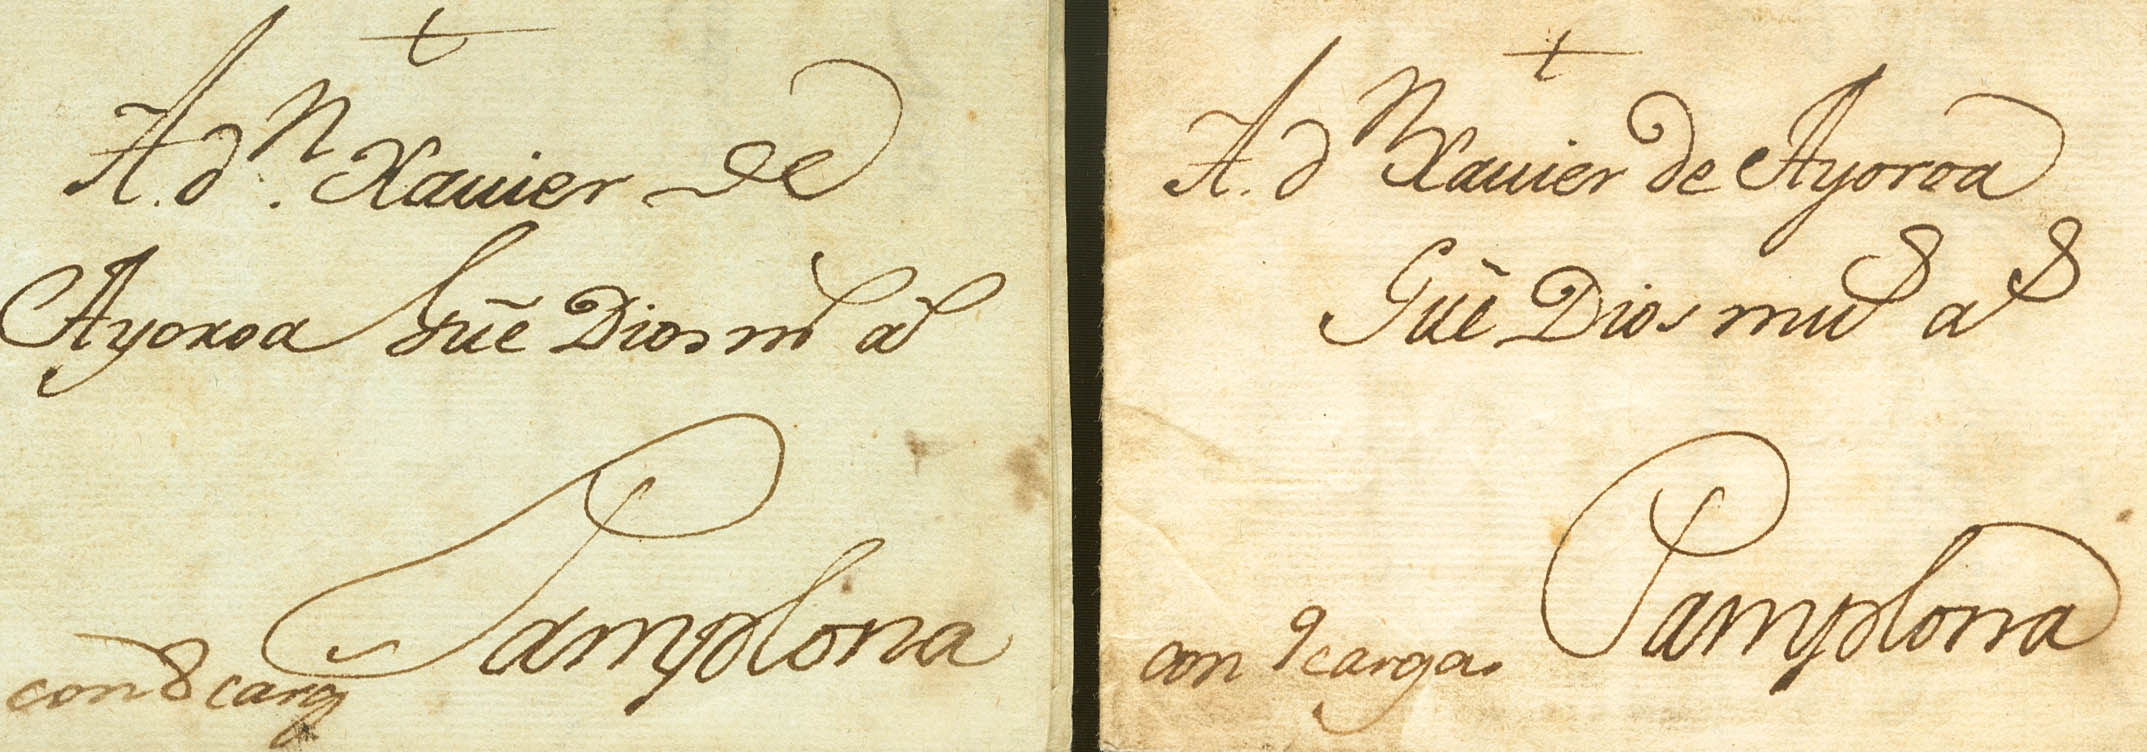 +
A. dⁿ. Xauier de
Ayoroa Gūe Dios mˢ aˢ
Pamplona
con 8 carg
+
A. dⁿ Xauier de Ayoroa
Gūe Dios muˢ aˢ
Pamplona
con 9 cargas